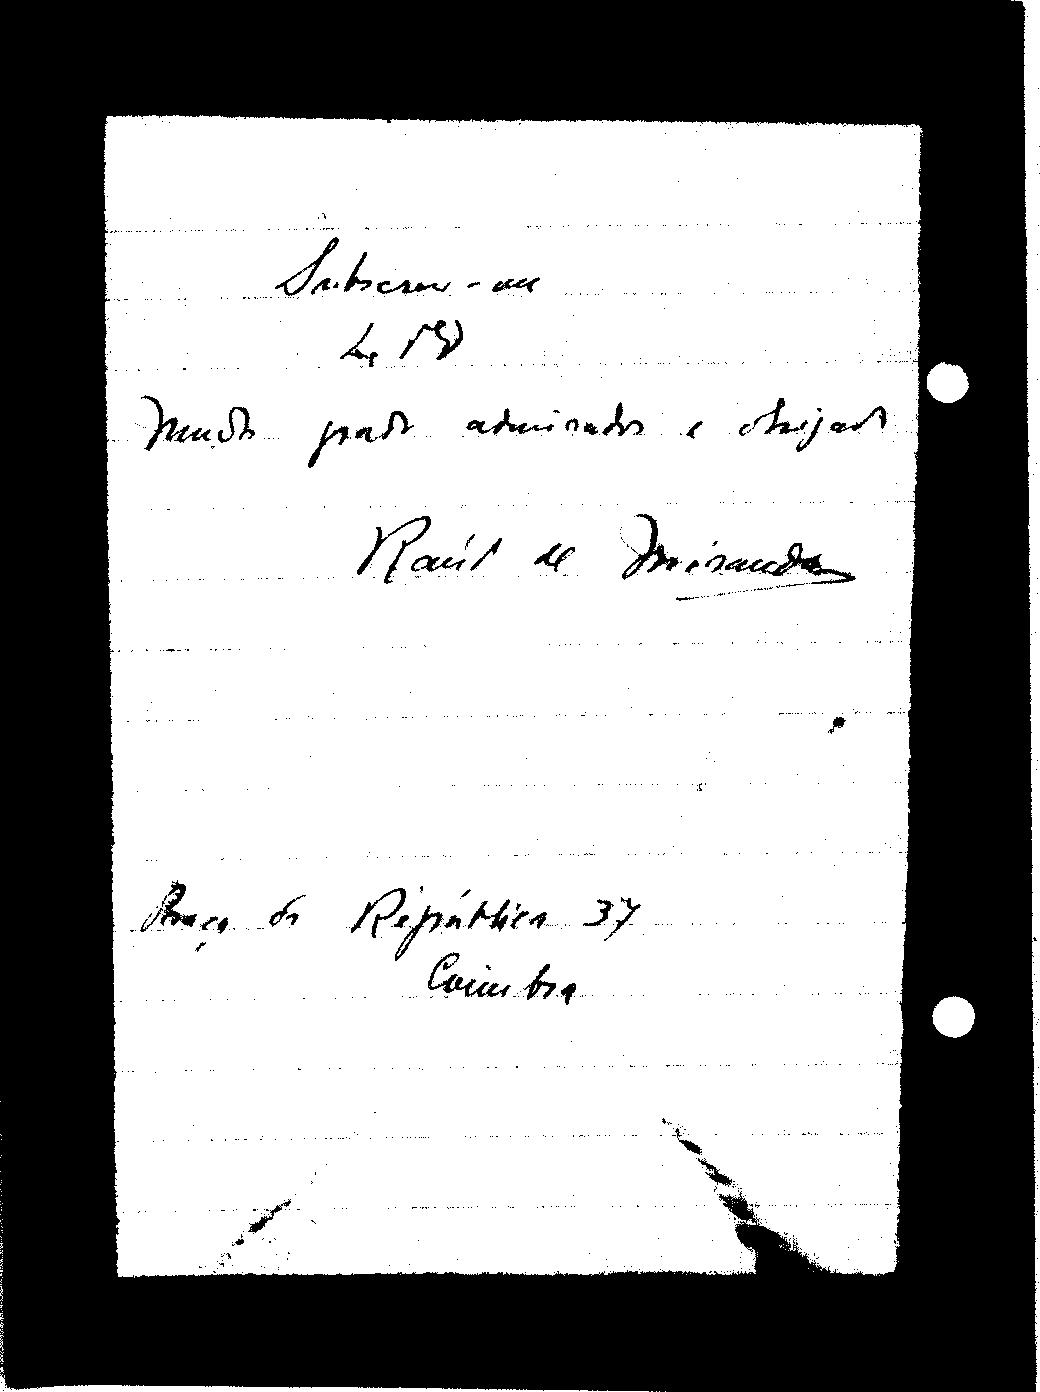 Subscrevo-me
de V.
Muito grato admirador e obrigado
Raúl de Miranda
Praça da República 37
Coimbra